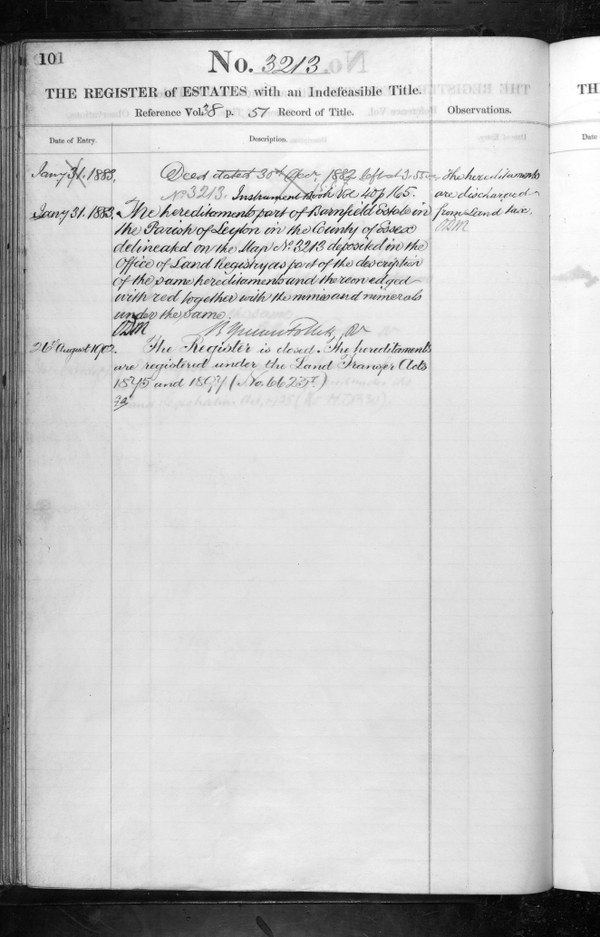 101
No. 3213.
THE REGISTER of ESTATES with an Indefeasible Title.
Reference Vol. 38 p. 51 Record of Title.
Observations.
Date of Entry.
Description.
Jany 31. 1883.
Deed dated 30th 1882 left at 3.55
No 3213. Instrument Book Vol 40 p 165.
The hereditaments
are discharged
from Land tax.
Jany 31. 1883.
The hereditaments part of Barnfield Estate in
the Parish of Leyton in the County of Essex
delineated on the Map No 3213 deposited in the
Office of Land Registry as part of the description
of the same hereditaments and thereon edged
with red together with the mines and minerals
under the same
26th August 1902.
The Register is closed. The hereditaments
are registered under the Land Transfer Acts
1875 and 1897 (No. 66257)
TH
Date